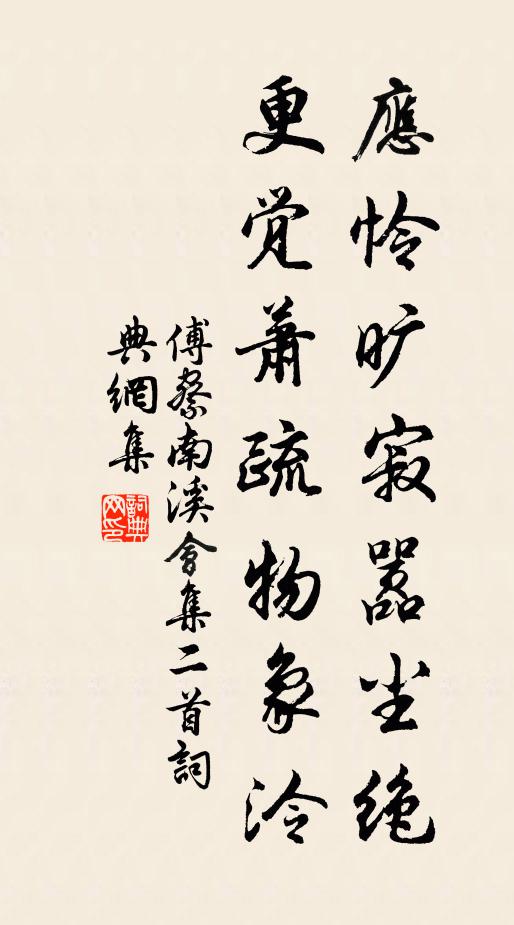 應怜旷寂嚣尘绝
更觉蕭疏物象泠
傅察南溪會集二首詞
典網集
詞典
网印